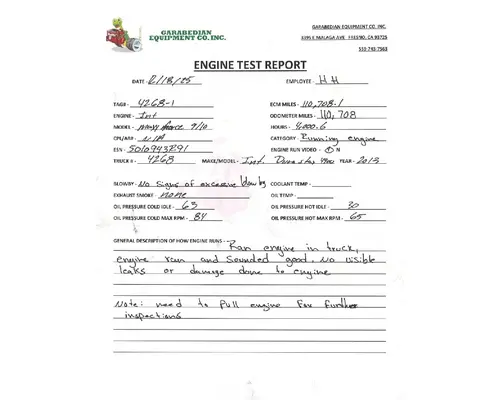 GARABEDIAN
EQUIPMENT CO. INC.
GARABEDIAN EQUIPMENT CO. INC.
3395 E MALAGA AVE FRESNO, CA 93725
559-745-7563
ENGINE TEST REPORT
DATE - 2/18/25 EMPLOYEE - HH
TAG# - 4268-1 ECM MILES - 110,708.1
ENGINE - Int ODOMETER MILES - 110,708
MODEL - maxxforce 9/10 HOURS - 4000.6
CPL/AR# - N/A CATEGORY - Running engine
ESN - 501094329 ENGINE RUN VIDEO - Y N
TRUCK # - 4268 MAKE/MODEL - Int. Durastar YEAR - 2013
BLOWBY - No Signs of excessive blowby COOLANT TEMP -
EXHAUST SMOKE - none OIL TEMP -
OIL PRESSURE COLD IDLE - 63 OIL PRESSURE HOT IDLE - 30
OIL PRESSURE COLD MAX RPM - 84 OIL PRESSURE HOT MAX RPM - 65
GENERAL DESCRIPTION OF HOW ENGINE RUNS - Ran engine in truck,
engine ran and sounded good. No visible
leaks or damage done to engine
Note: need to Pull engine For further
inspections